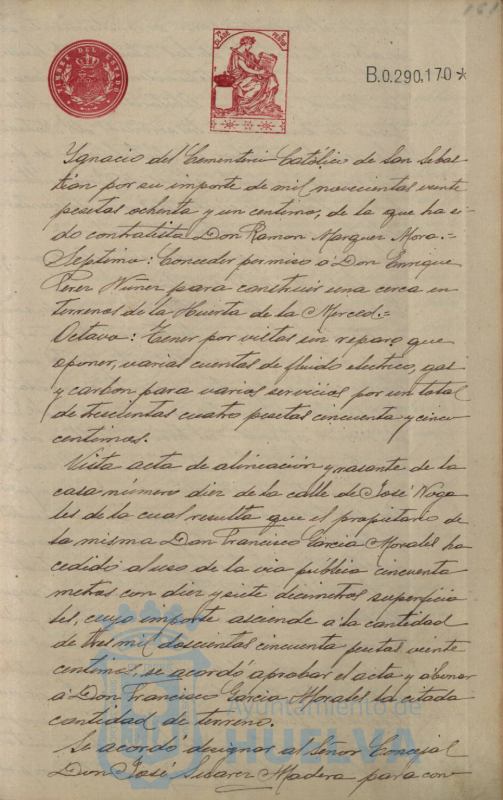 161
B.0.290,170*
Ygnacio del Cementerio Católico de San Sebas-
tian por su importe de mil novecientas veinte
pesetas ochenta y un centimo, de la que ha si-
do contratista Don Ramon Marquez Mora.=
Septimo: Conceder permiso á Don Enrique
Perez Nuñez para construir una cerca en
terrenos de la Huerta de la Merced.=
Octavo: Tener por vistas sin reparo que
oponer, varias cuentas de fluido electrico, gas
y carbon para varios servicios por un total
de trescientas cuatro pesetas cincuenta y cinco
centimos.
Vista acta de alineación y rasante de la
casa número diez de la calle de José Noga-
les de la cual resulta que el propietario de
la misma Don Francisco Garcia Morales ha
cedido al uso de la via pública cincuenta
metros con diez y siete decimetros superficia-
les, cuyo importe asciende a la cantidad
de tres mil doscientas cincuenta pesetas veinte
centimos, se acordó aprobar el acta y abonar
á Don Francisco Garcia Morales la citada
cantidad de terreno.
Se acordó designar al Señor Concejal
Don José Suarez Madera para con-
Ayuntamiento de
HUELVA